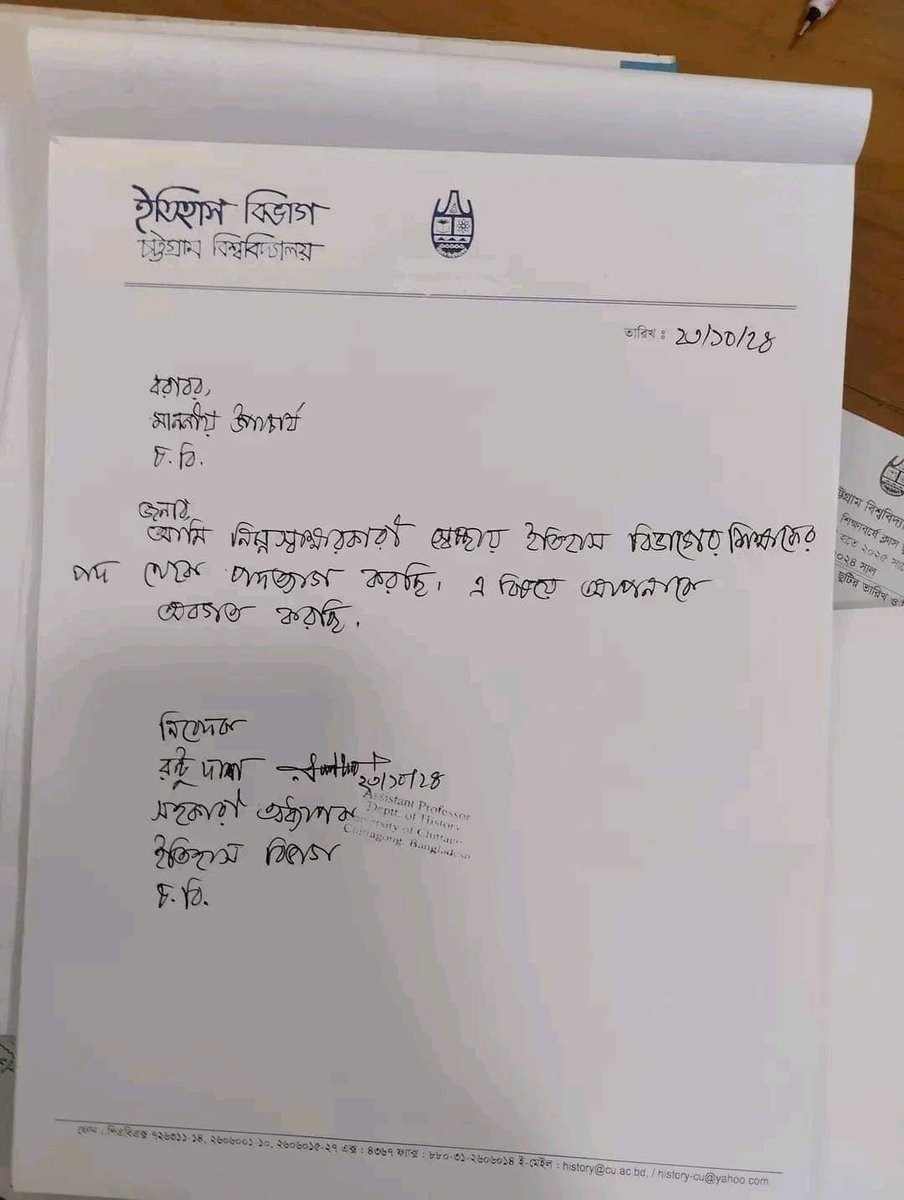 ইতিহাস বিভাগ
চট্টগ্রাম বিশ্ববিদ্যালয়
তারিখ : ২৩/১০/২৪
বরাবর,
মাননীয় উপাচার্য
চ. বি.
জনাব,
আমি নিম্নস্বাক্ষরকারী স্বেচ্ছায় ইতিহাস বিভাগের শিক্ষকের
পদ থেকে পদত্যাগ করছি। এ বিষয়ে আপনাকে
অবগত করছি.
নিবেদক
রন্টু দাশ
২৩/১০/২৪
সহকারী অধ্যাপক
Assistant Professor
Deptt. of History
University of Chittagong
Chittagong, Bangladesh
ইতিহাস বিভাগ
চ. বি.
ফোন : পিএবিএক্স ৭২৬৩১১-১৪, ২৬০৬০০১-১০, ২৬০৬০১৫-২৭ এক্স : ৪৩৬৭ ফ্যাক্স : ৮৮০-৩১-২৬০৬০১৪ ই-মেইল : history@cu.ac.bd, / history-cu@yahoo.com
চট্টগ্রাম
শিক্ষাবর্ষে ক্লাস
হতে ২০২৫
২০২৪ সাল
ছুটির তারিখ ও